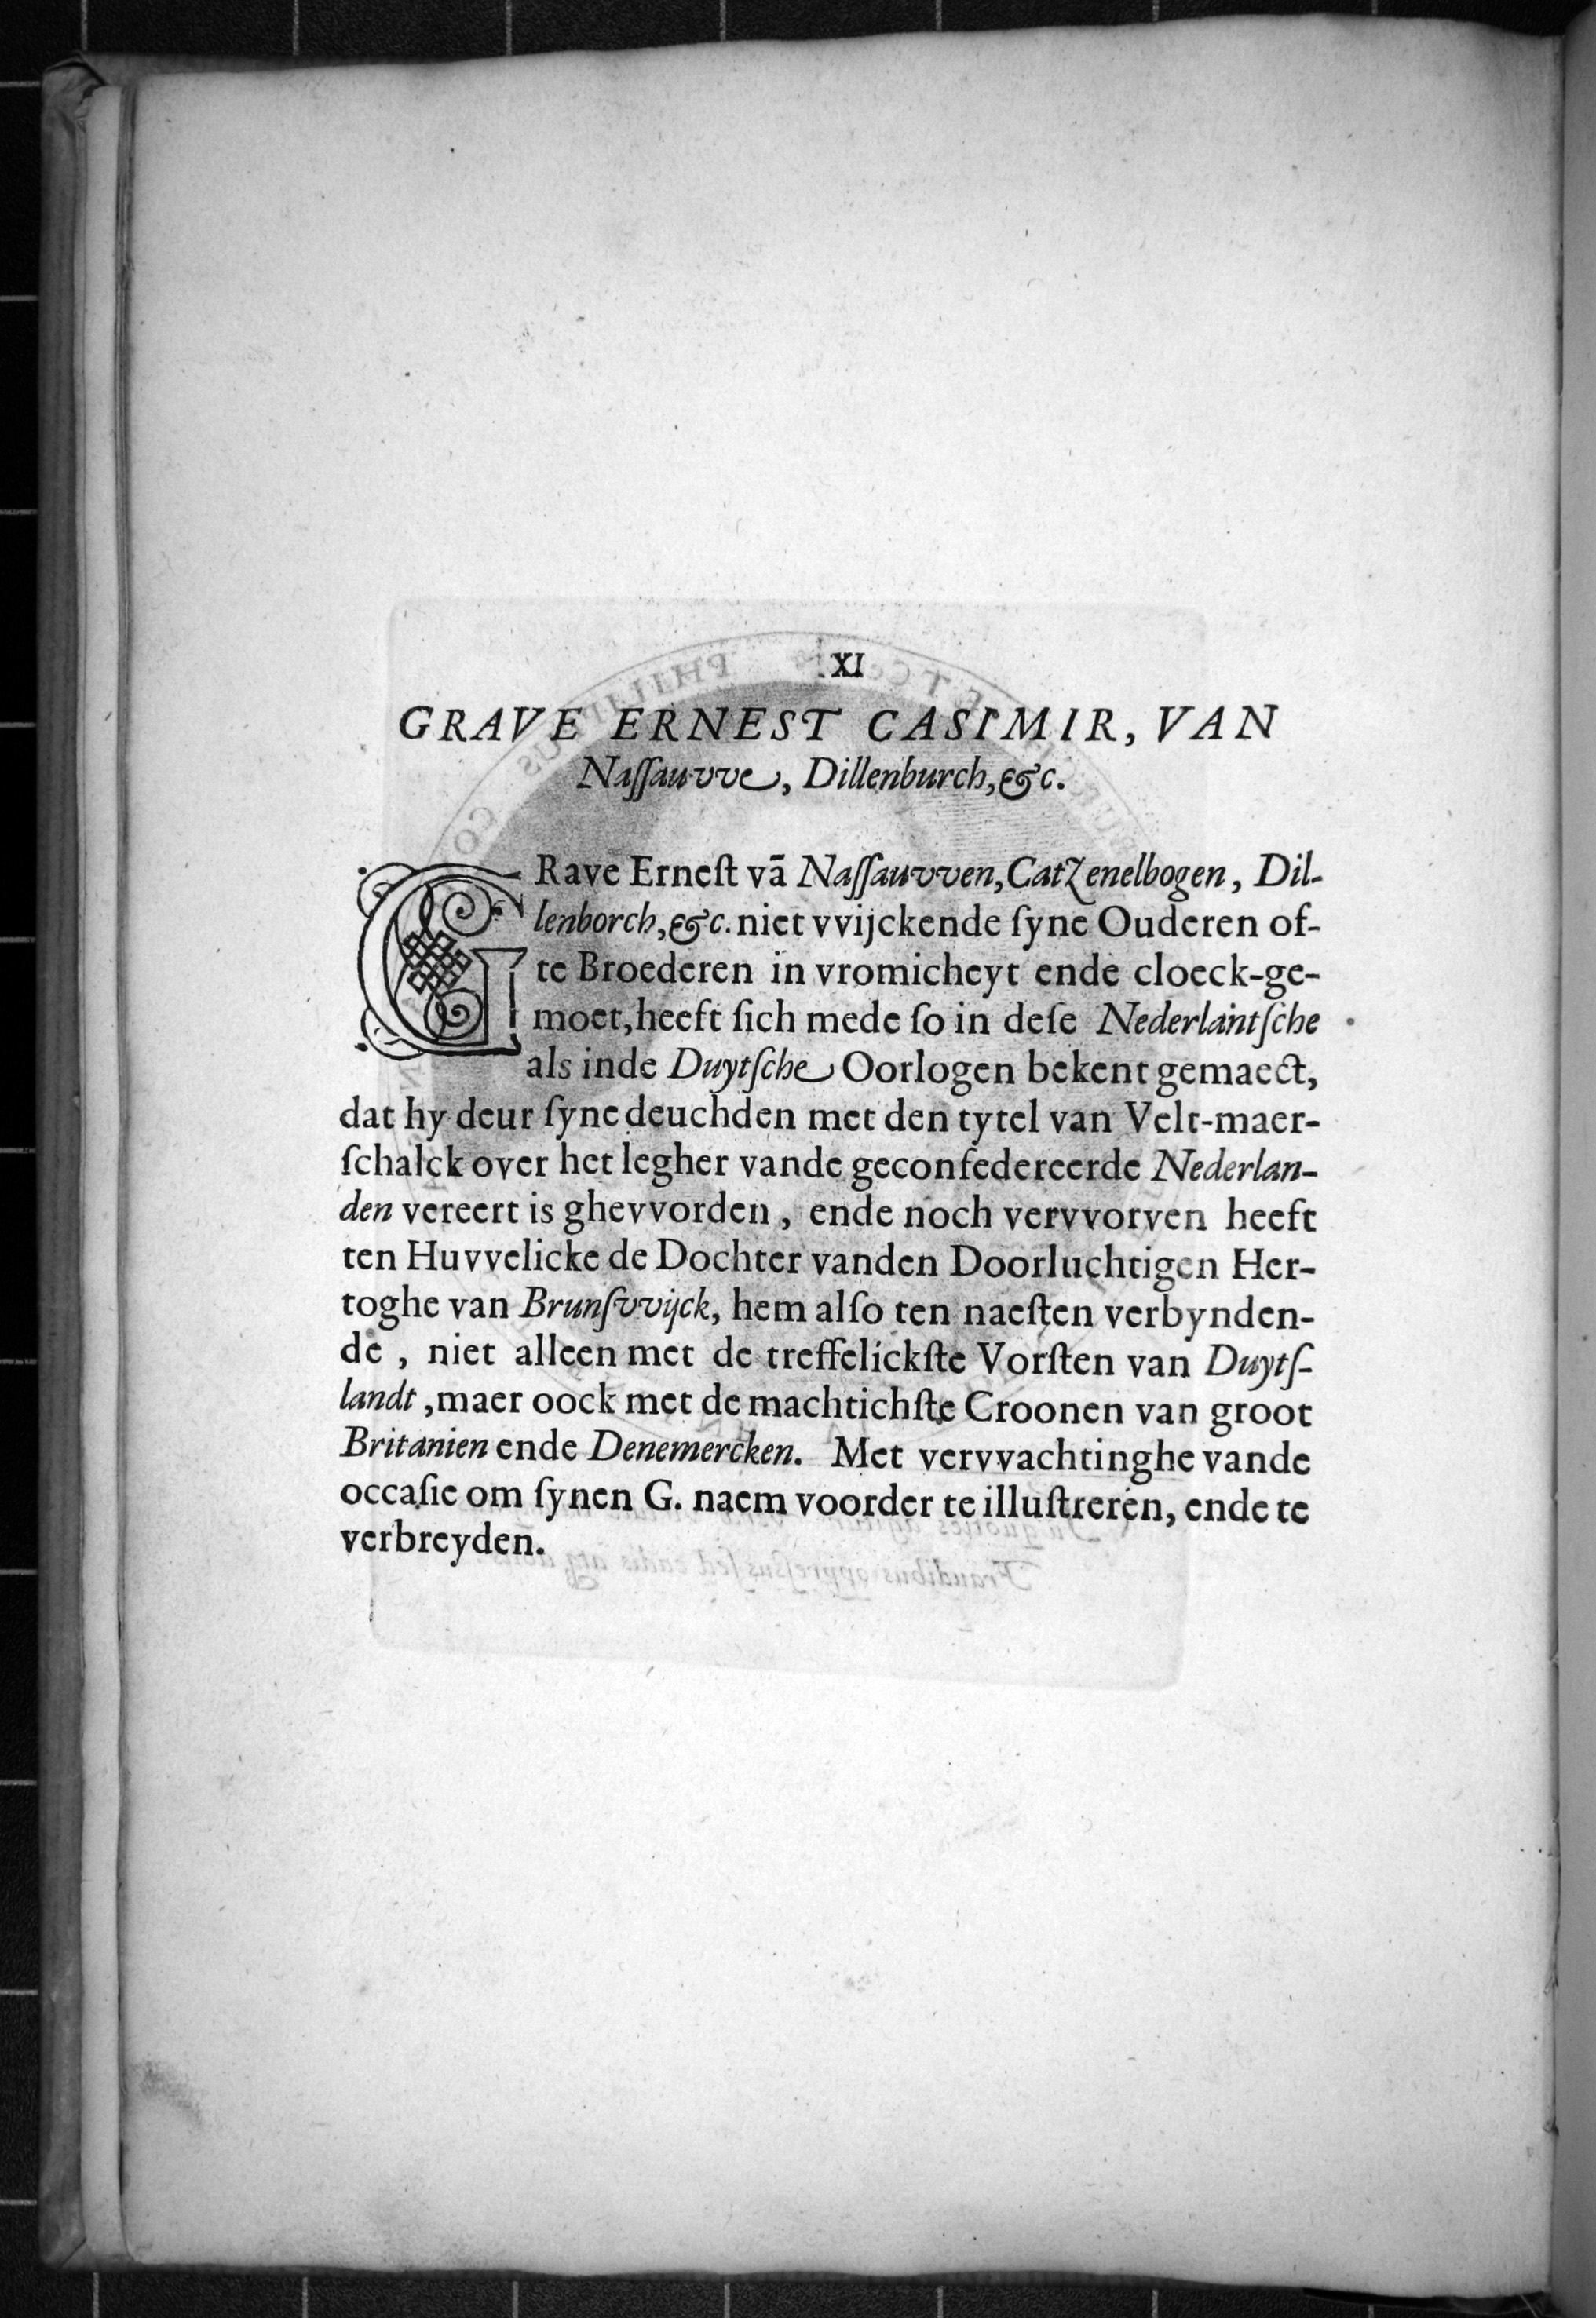 XI
GRAVE ERNEST CASIMIR, VAN
Naſſauvve, Dillenburch, &c.
GRave Erneſt vā Naſſauvven, Catzenelbogen, Dil-
lenborch, &c. niet vvijckende ſyne Ouderen of-
te Broederen in vromicheyt ende cloeck-ge-
moet, heeft ſich mede ſo in deſe Nederlantſche
als inde Duytſche Oorlogen bekent gemaect,
dat hy deur ſyne deuchden met den tytel van Velt-maer-
ſchalck over het legher vande geconfedereerde Nederlan-
den vereert is ghevvorden, ende noch vervvorven heeft
ten Huvvelicke de Dochter vanden Doorluchtigen Her-
toghe van Brunſvvijck, hem alſo ten naeſten verbynden-
de, niet alleen met de treffelickſte Vorſten van Duytſ-
landt, maer oock met de machtichſte Croonen van groot
Britanien ende Denemercken. Met vervvachtinghe vande
occaſie om ſynen G. naem voorder te illuſtreren, ende te
verbreyden.